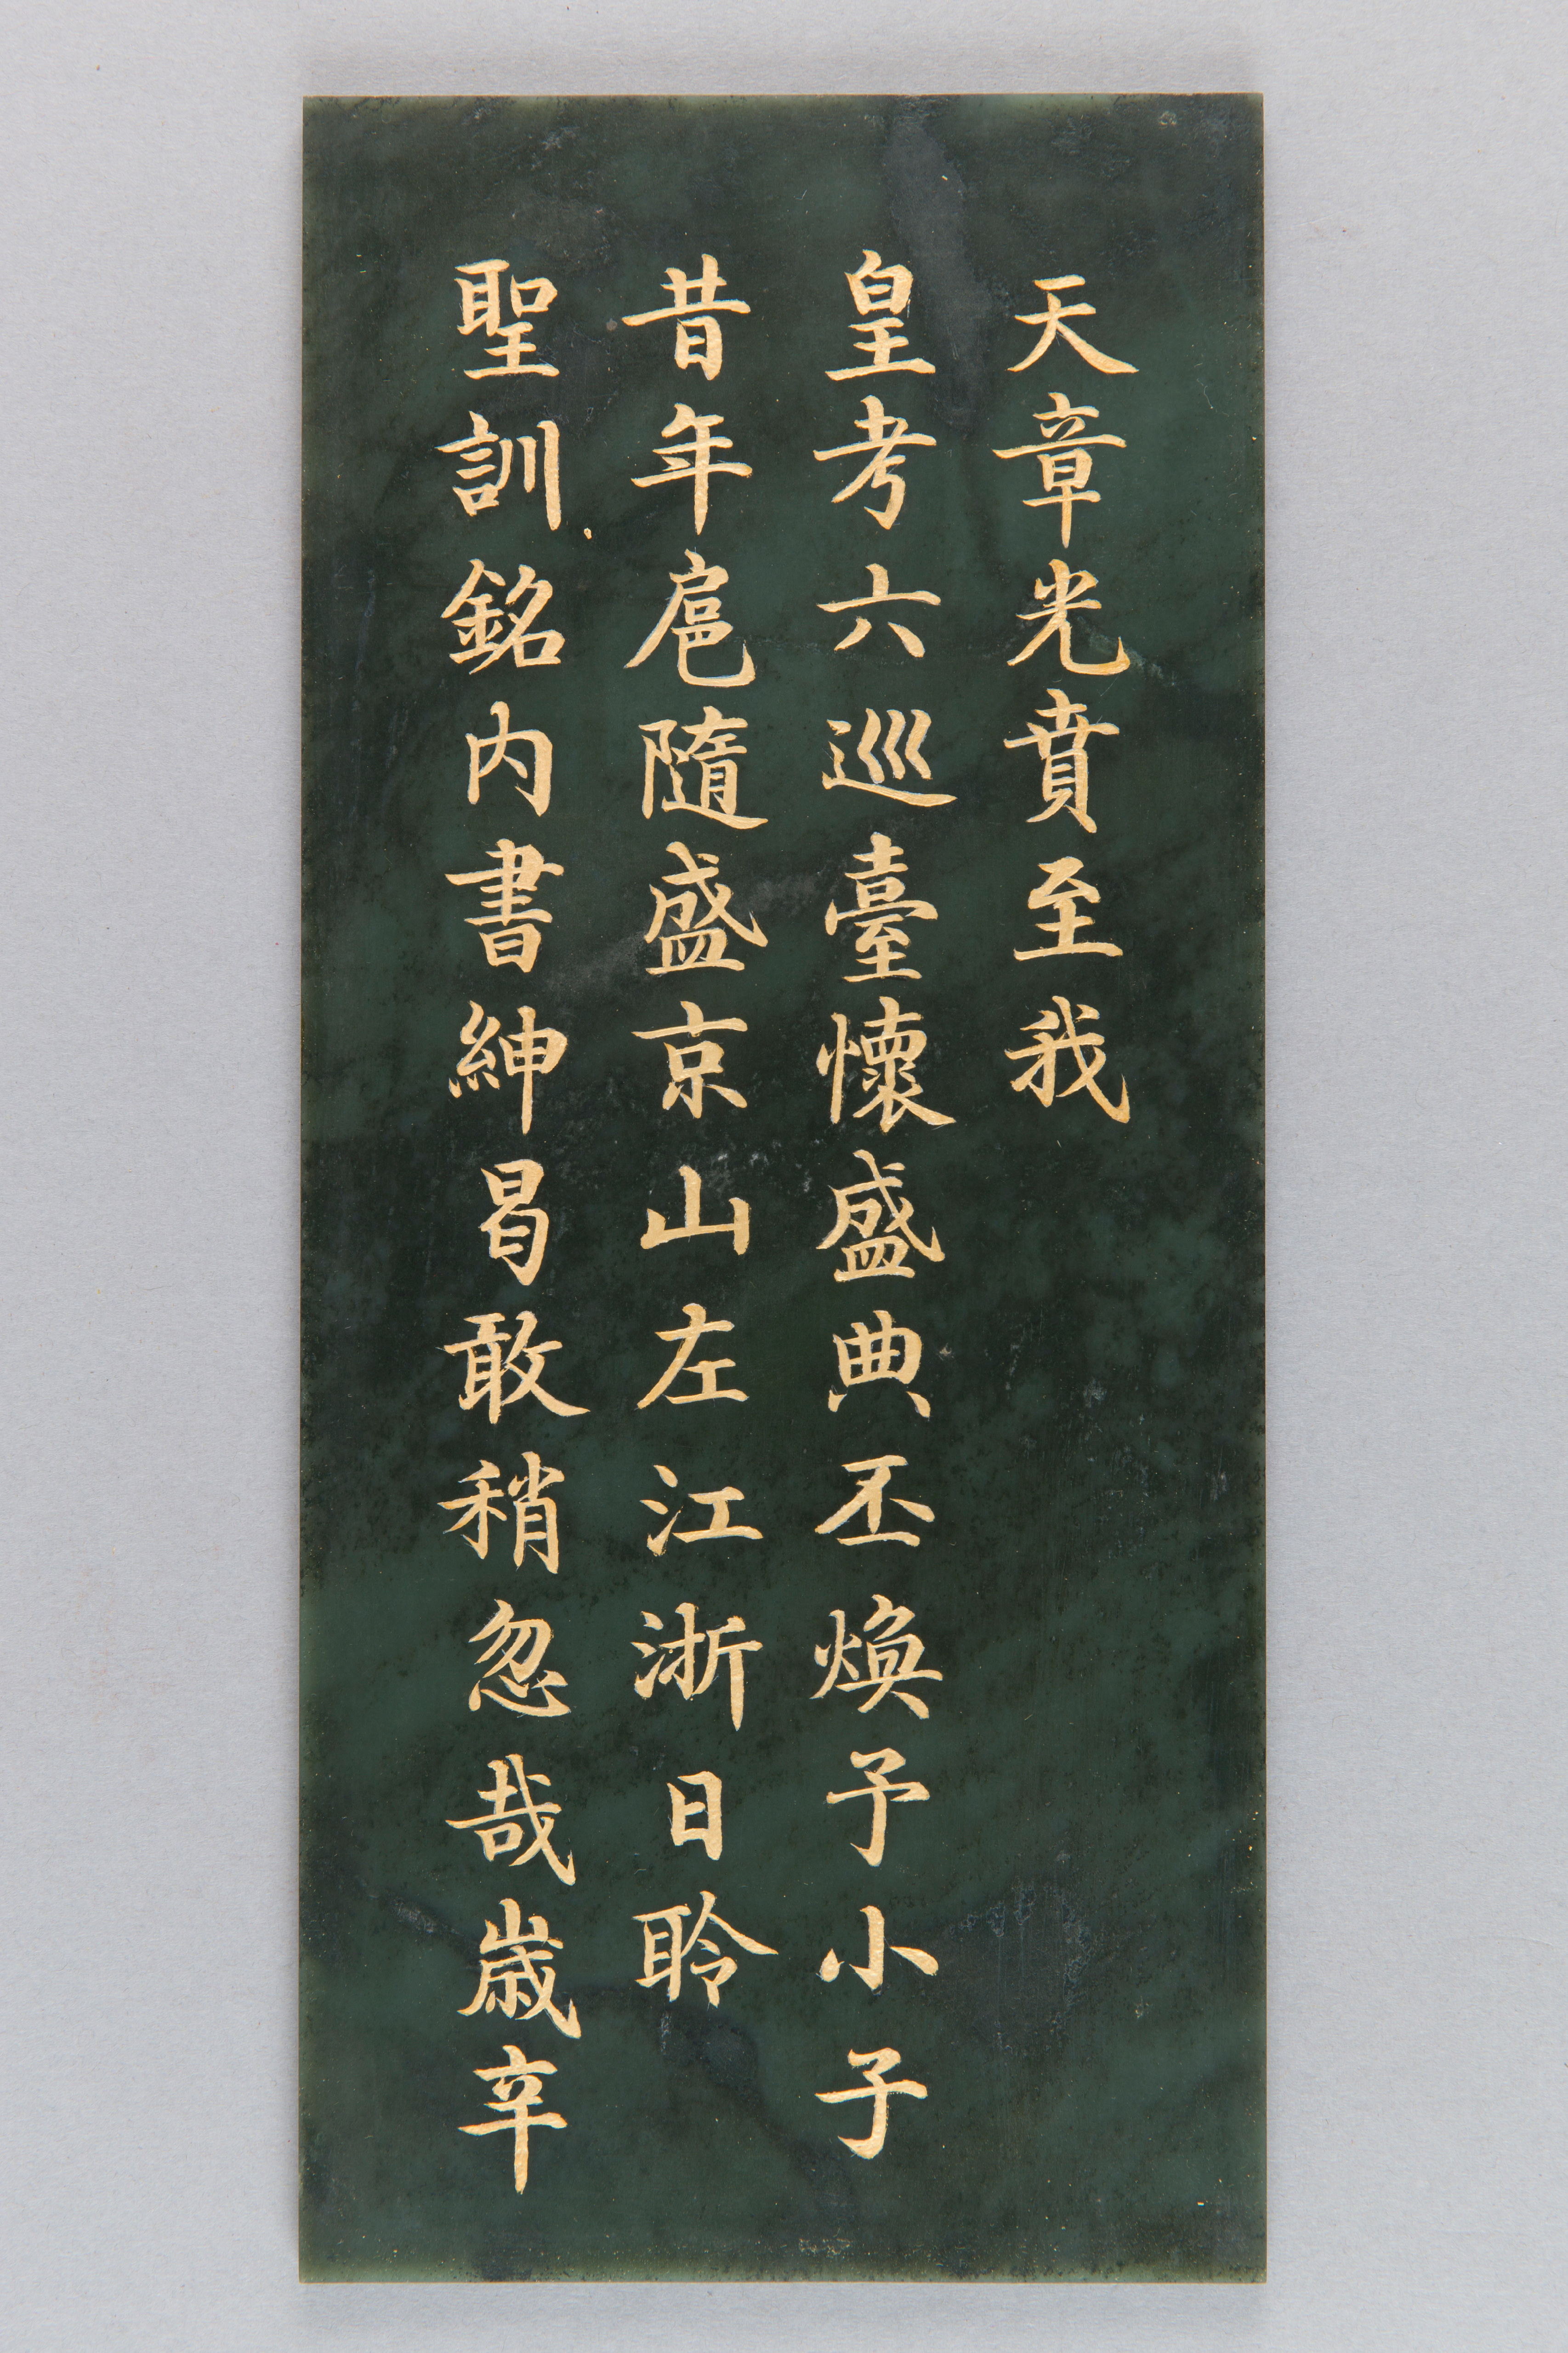 天章光賁至我
皇考六巡臺懷盛典丕煥予小子
昔年扈隨盛京山左江浙日聆
聖訓銘內書紳曷敢稍忽哉歲辛